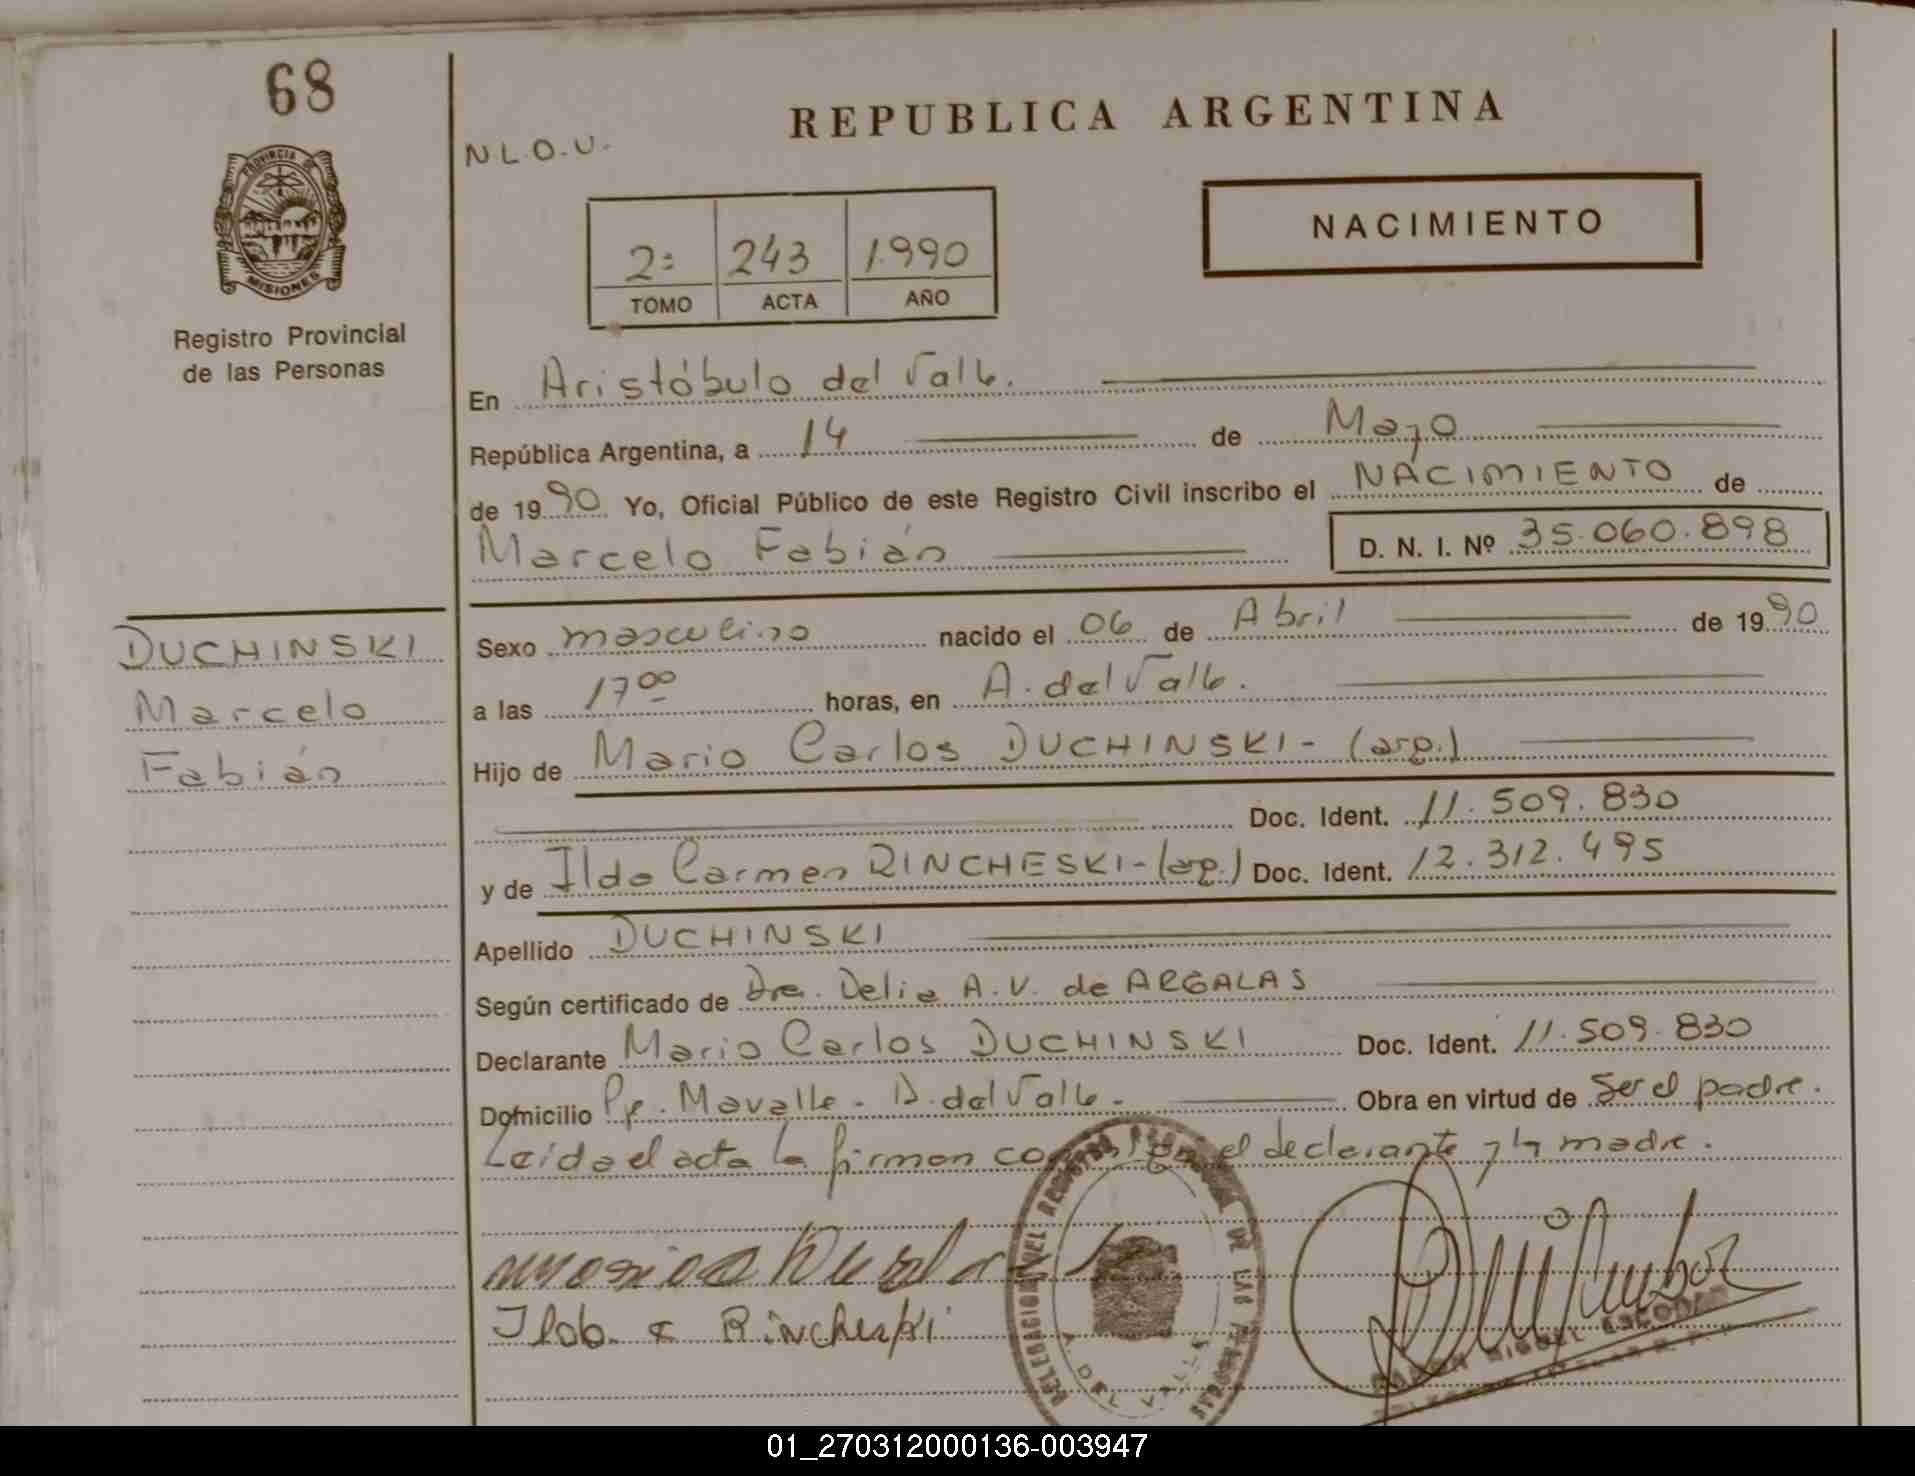 68
PROVINCIA DE
MISIONES
Registro Provincial
de las Personas
N.L.O.U.
REPUBLICA ARGENTINA
NACIMIENTO
2ª 243 1.990
TOMO ACTA AÑO
En Aristóbulo del Valle.
República Argentina, a 14 de Mayo
de 1990 Yo, Oficial Público de este Registro Civil inscribo el NACIMIENTO de
Marcelo Fabián D. N. I. Nº 35.060.898
DUCHINSKI
Marcelo
Fabián
Sexo masculino nacido el 06 de Abril de 1990
a las 17 00 horas, en A. del Valle.
Hijo de Mario Carlos DUCHINSKI - (arg.)
Doc. Ident. 11.509.830
y de Ilda Carmen RINCHESKI - (arg.) Doc. Ident. 12.312.495
Apellido DUCHINSKI
Según certificado de Dra. Delia A. V. de ARGALAS
Declarante Mario Carlos DUCHINSKI Doc. Ident. 11.509.830
Domicilio Pje. Mavalle - A. del Valle - Obra en virtud de Ser el padre.
Leída el acta la firman el declarante y la madre.
DELEGACION DEL REGISTRO DE LAS PERSONAS
A. DEL VALLE
Rincheski
MIGUEL ESCOBAR
01_270312000136-003947